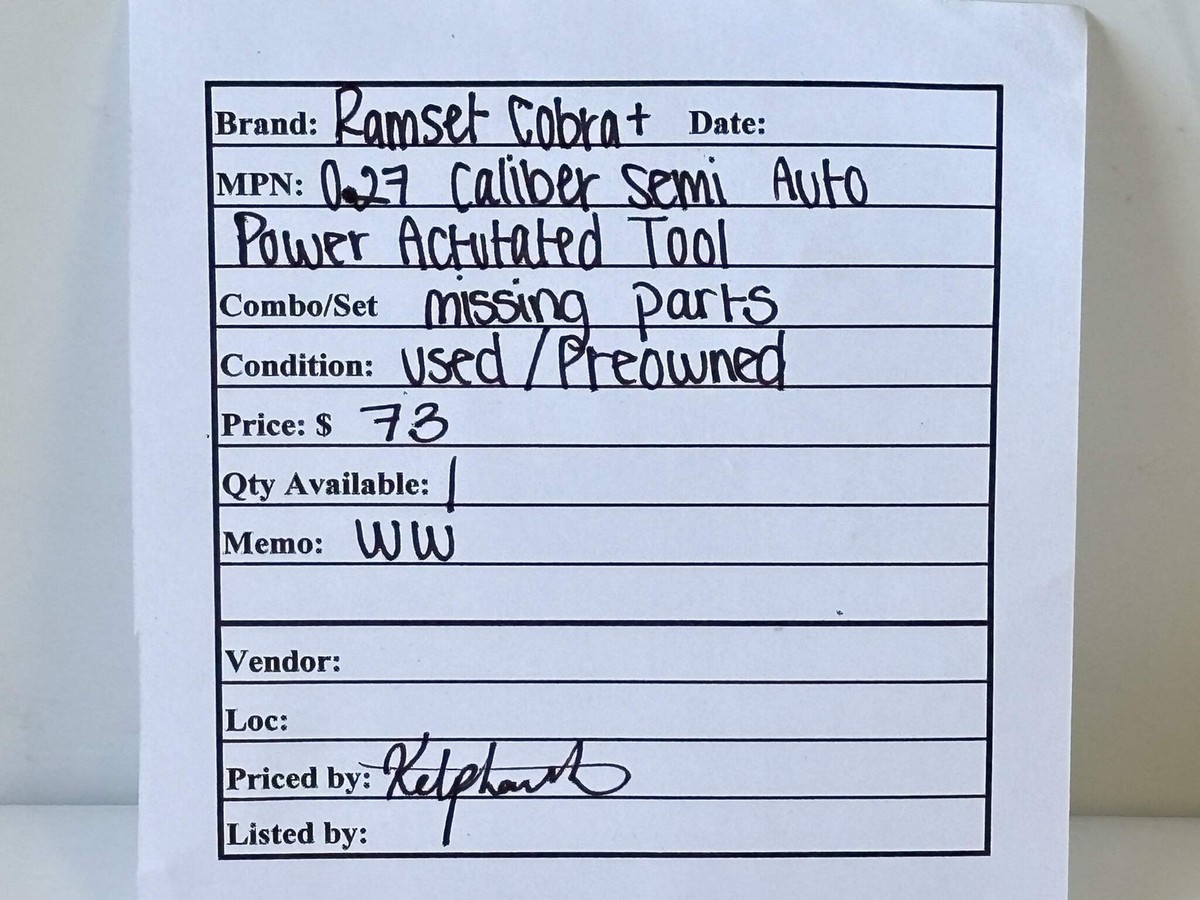 Brand: Ramset Cobra+ Date:
MPN: 0.27 Caliber Semi Auto
Power Actutated Tool
Combo/Set missing parts
Condition: Used/Preowned
Price: $ 73
Qty Available: 1
Memo: WW
Vendor:
Loc:
Priced by:
Listed by: